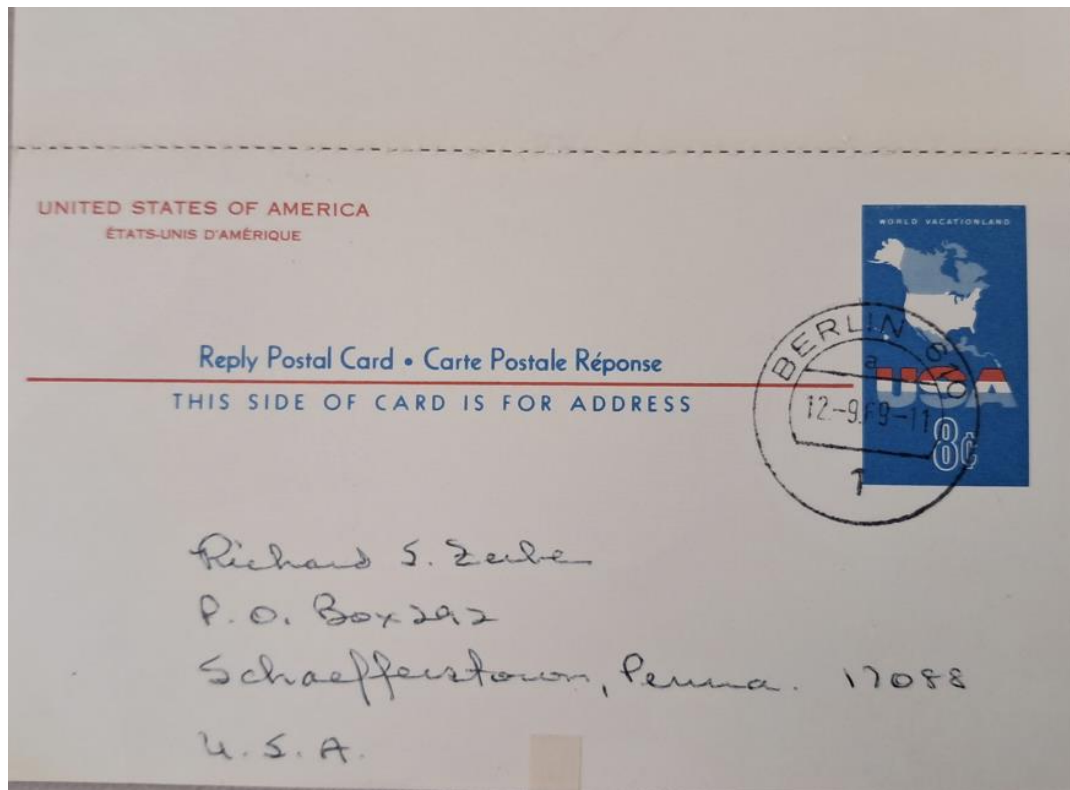 UNITED STATES OF AMERICA
ÉTATS-UNIS D'AMÉRIQUE
WORLD VACATIONLAND
USA
8¢
Reply Postal Card • Carte Postale Réponse
THIS SIDE OF CARD IS FOR ADDRESS
BERLIN
a
12.-9.69-11
1
Richard S. Zerbe
P.O. Box 292
Schaefferstown, Penna. 17088
U.S.A.